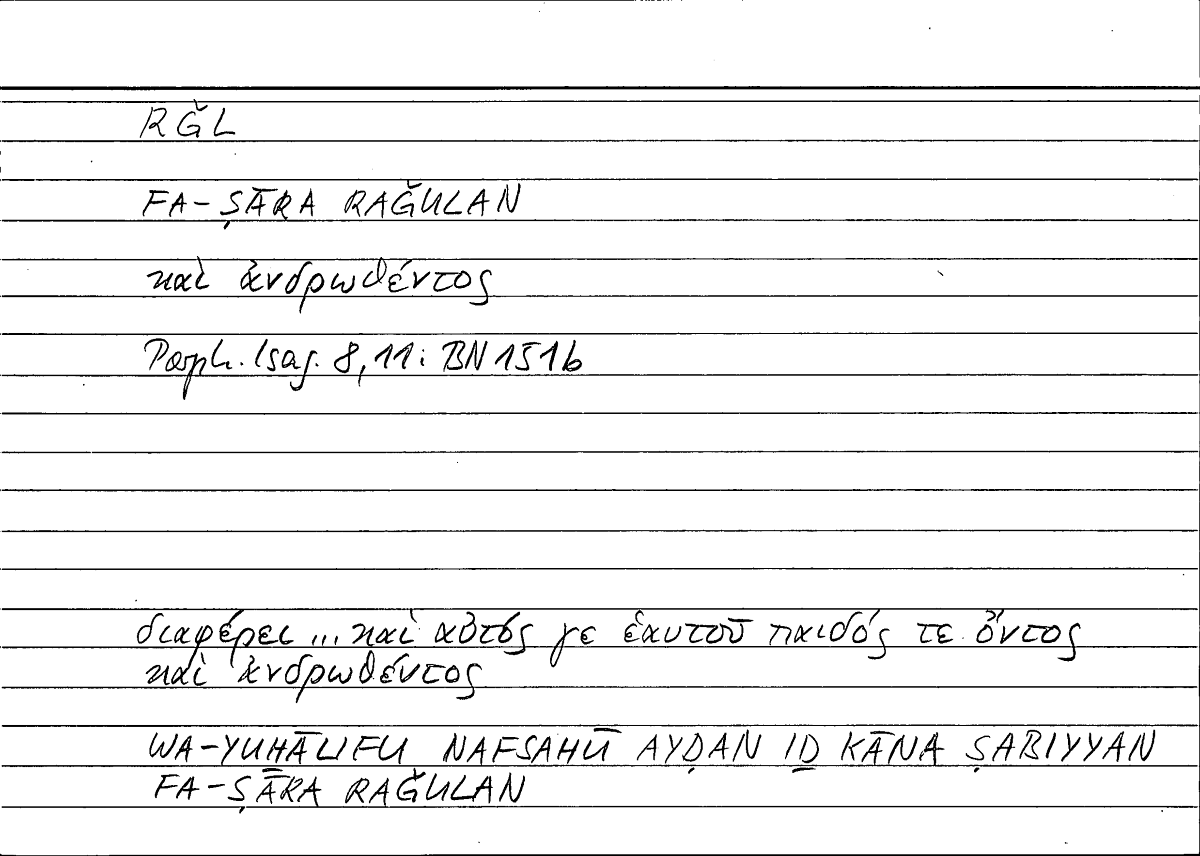 RǦL
FA-ṢĀRA RAǦULAN
καὶ ἀνδρωθέντος
Porph. Isag. 8,11: BN 151b
διαφέρει ... καὶ αὐτός γε ἑαυτοῦ παιδός τε ὄντος
καὶ ἀνδρωθέντος
WA-YUḪĀLIFU NAFSAHŪ AYḌAN IḎ KĀNA ṢABIYYAN
FA-ṢĀRA RAǦULAN